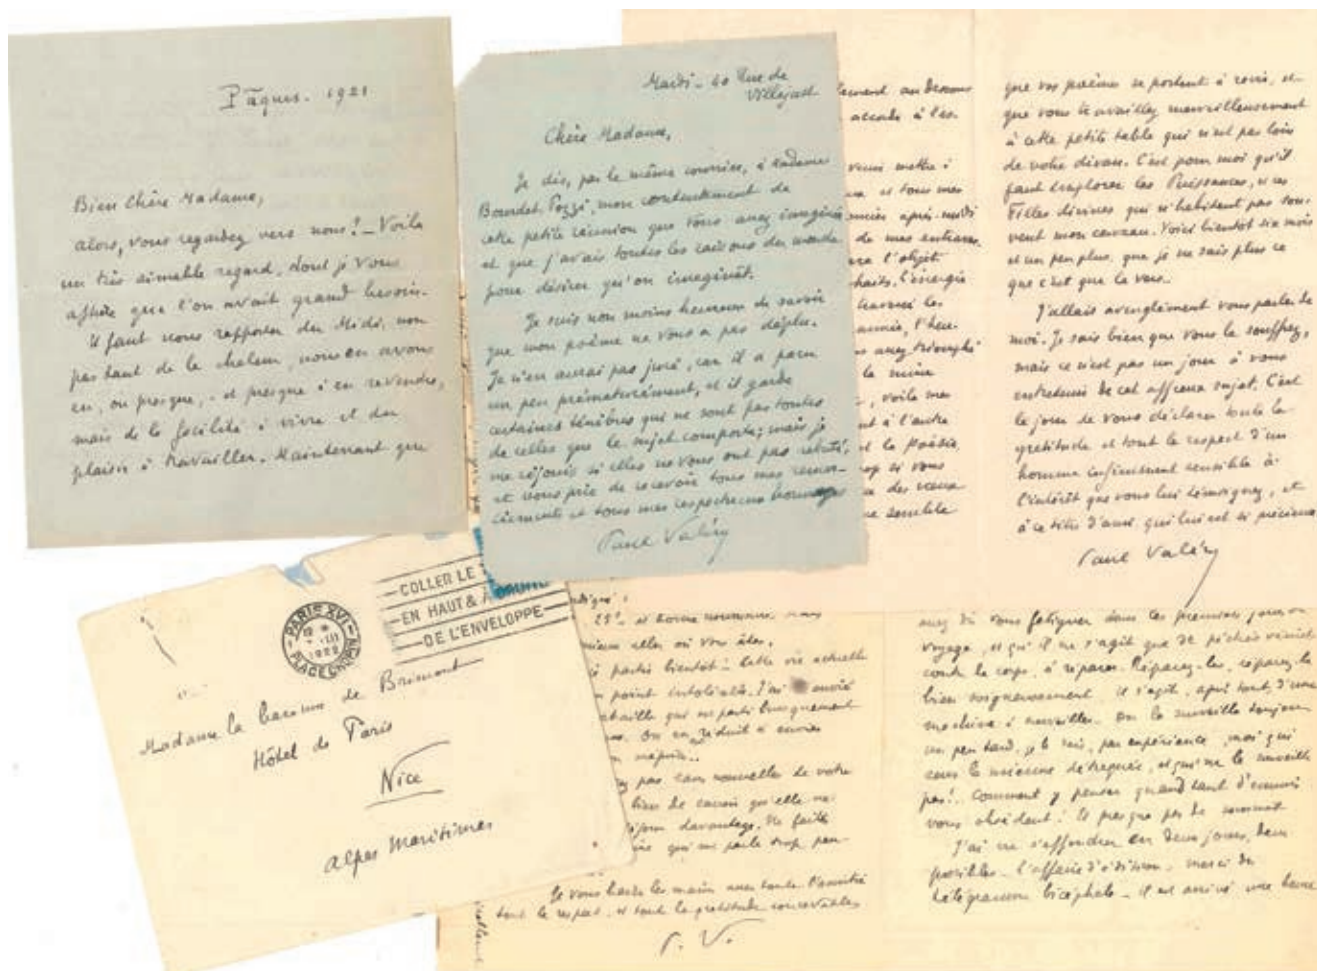 Pâques. 1921
Bien Chère Madame,
alors, vous regardez vers nous! _ Voilà
un très aimable regard, dont je vous
assure que l'on avait grand besoin.
Il faut nous rapporter du Midi, non
pas tant de la chaleur, nous en avons
eu, ou presque, - et presque à en revendre,
mais de la facilité à vivre et du
plaisir à travailler. Maintenant que
Mardi - 40 Rue de
Villejust
Chère Madame,
Je dis, par le même courrier, à Madame
Bourdet-Pozzi, mon contentement de
cette petite réunion que vous avez imaginée
et que j'avais toutes les raisons du monde
pour désirer qu'on imaginât.
Je suis non moins heureux de savoir
que mon poème ne vous a pas déplu.
Je n'en aurai pas juré, car il a paru
un peu prématurément, et il garde
certaines ténèbres qui ne sont pas toutes
de celles que le sujet comporte; mais je
me réjouis si elles ne vous ont pas rebuté;
et vous prie de recevoir tous mes remer-
ciements et tous mes respectueux hommages
Paul Valéry
au dessous
accordé à l'es-
venu mettre à
et tous mes
après-midi
de mes entraves.
l'objet
l'énergie
les
l'heu-
avez triomphé
la
, voilà mes
à l'autre
la Poésie.
si vous
des vœux
semble
que vos poèmes se portent à ravir, et
que vous travaillez merveilleusement
à cette petite table qui n'est pas loin
de votre divan. C'est pour moi qu'il
faut implorer les Puissances, et ces
Filles divines qui n'habitent pas sou-
vent mon cerveau. Voici bientôt six mois
et un peu plus, que je ne sais plus ce
que c'est que le vers.
J'allais aveuglément vous parler de
moi. Je sais bien que vous le souffrez,
mais ce n'est pas un jour à vous
entretenir de cet affreux sujet. C'est
le jour de vous déclarer toute la
gratitude et tout le respect d'un
homme infiniment sensible à
l'intérêt que vous lui témoignez, et
à ce titre d'ami qui lui est si précieux
Paul Valéry
COLLER LE
EN HAUT & A DROITE
DE L'ENVELOPPE
PARIS XVI
1922
PLACE CHOPIN
Madame la baronne de Brimont
Hôtel de Paris
Nice
Alpes Maritimes
et bonne nourriture, mais
aller où vous êtes.
parti bientôt - Cette vie actuelle
point intolérable. J'ai envié
qui est parti brusquement
On en est réduit à envier
pas sans nouvelles de votre
bien de savoir qu'elle ne
davantage. Ne faites
qui me parle trop peu
Je vous baise les mains avec toute l'amitié
tout le respect, et toute la gratitude concevables
P. V.
avez dû vous fatiguer dans les premiers jours du
voyage, et qu'il ne s'agit que de péchés véniels
contre le corps, à réparer. Réparez-les, réparez-le
bien soigneusement. Il s'agit, après tout, d'une
machine à surveiller. On la surveille toujours
un peu tard, je le sais, par expérience, moi qui
sens la mienne détraquée, et qui ne la surveille
pas!.. Comment y penser quand tant d'ennuis
vous obsèdent!
J'ai vu s'effondrer en deux jours, deux
possibles - l'affaire d'édition. Merci du
télégramme bicéphale - il est arrivé une heure